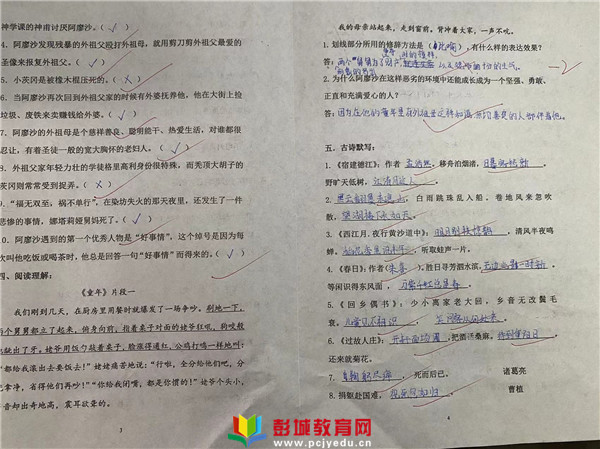 神学课的神甫讨厌阿廖沙。(✓)
4. 阿廖沙发现残暴的外祖父殴打外祖母,就用剪刀剪外祖父最爱的
圣像来报复外祖父。(✓)
5. 小茨冈是被橡木棍压死的。(×)
6. 当阿廖沙再次回到外祖父家的时候有外婆抚养他,他在大街上捡
垃圾、废铁来卖赚钱给外婆。(✓)
7. 阿廖沙的外祖母是个慈祥善良、聪明能干、热爱生活,对谁都很
忍让,有着圣徒一般的宽大胸怀的老妇人。(✓)
8. 外祖父家年轻力壮的学徒格里高利身份很特殊,而秃顶大胡子的
茨冈则常常受到捉弄。(×)
9. “福无双至,祸不单行”,在染坊失火的那天夜里,还发生了一件
悲惨的事情,娜塔莉娅舅妈死了。(✓)
10. 阿廖沙遇到的第一个优秀人物是“好事情”,这个绰号是因为每
次叫他吃饭或喝茶时,他总是回答一句“好事情”而得来的。(✓)
四、阅读理解:
《童年》片段一
我们刚到几天,在厨房里用餐时就爆发了一场争吵。刹地一下,
两个舅舅都立了起来,俯身向前,指着桌子对面的姥爷狂吼,狗咬般
龇出了牙。姥爷用饭勺敲着桌子,脸涨得通红,公鸡打鸣一样地叫:
“都给我滚出去要饭去!”姥姥痛苦地说:“行啦,全分给他们吧,分
光拿净,省得他们再吵!”“你给我闭嘴,都是你惯的!”姥爷个头小,
声音却出奇地高,震耳欲聋的。
3
我的母亲站起来,走到窗前。背冲着大家,一声不吭。
1. 划线部分所用的修辞方法是(比喻),有什么样的表达效果?
答:
-2
2. 为什么阿廖沙在这样恶劣的环境中还能成长成为一个坚强、勇敢、
正直和充满爱心的人?
答:因为在他的童年里有外祖母这样
五、古诗默写:
1.《宿建德江》:作者 孟浩然,移舟泊烟渚,日暮客愁新。
野旷天低树,江清月近人。
2. 黑云翻墨未遮山,白雨跳珠乱入船。卷地风来忽吹
散,望湖楼下水如天。
3.《西江月.夜行黄沙道中》:明月别枝惊鹊,清风半夜鸣
蝉。稻花香里说丰年,听取蛙声一片。
4.《春日》:作者(朱熹),胜日寻芳泗水滨,无边光景一时新。
等闲识得东风面,万紫千红总是春。
5.《回乡偶书》:少小离家老大回,乡音无改鬓毛
衰。儿童相见不相识,笑问客从何处来。
6.《过故人庄》:开轩面场圃,把酒话桑麻。待到重阳日,
还来就菊花。
7. 鞠躬尽瘁,死而后已。 诸葛亮
8. 捐躯赴国难,视死忽如归。 曹植
4
彭城教育网
www.pcjyedu.cn